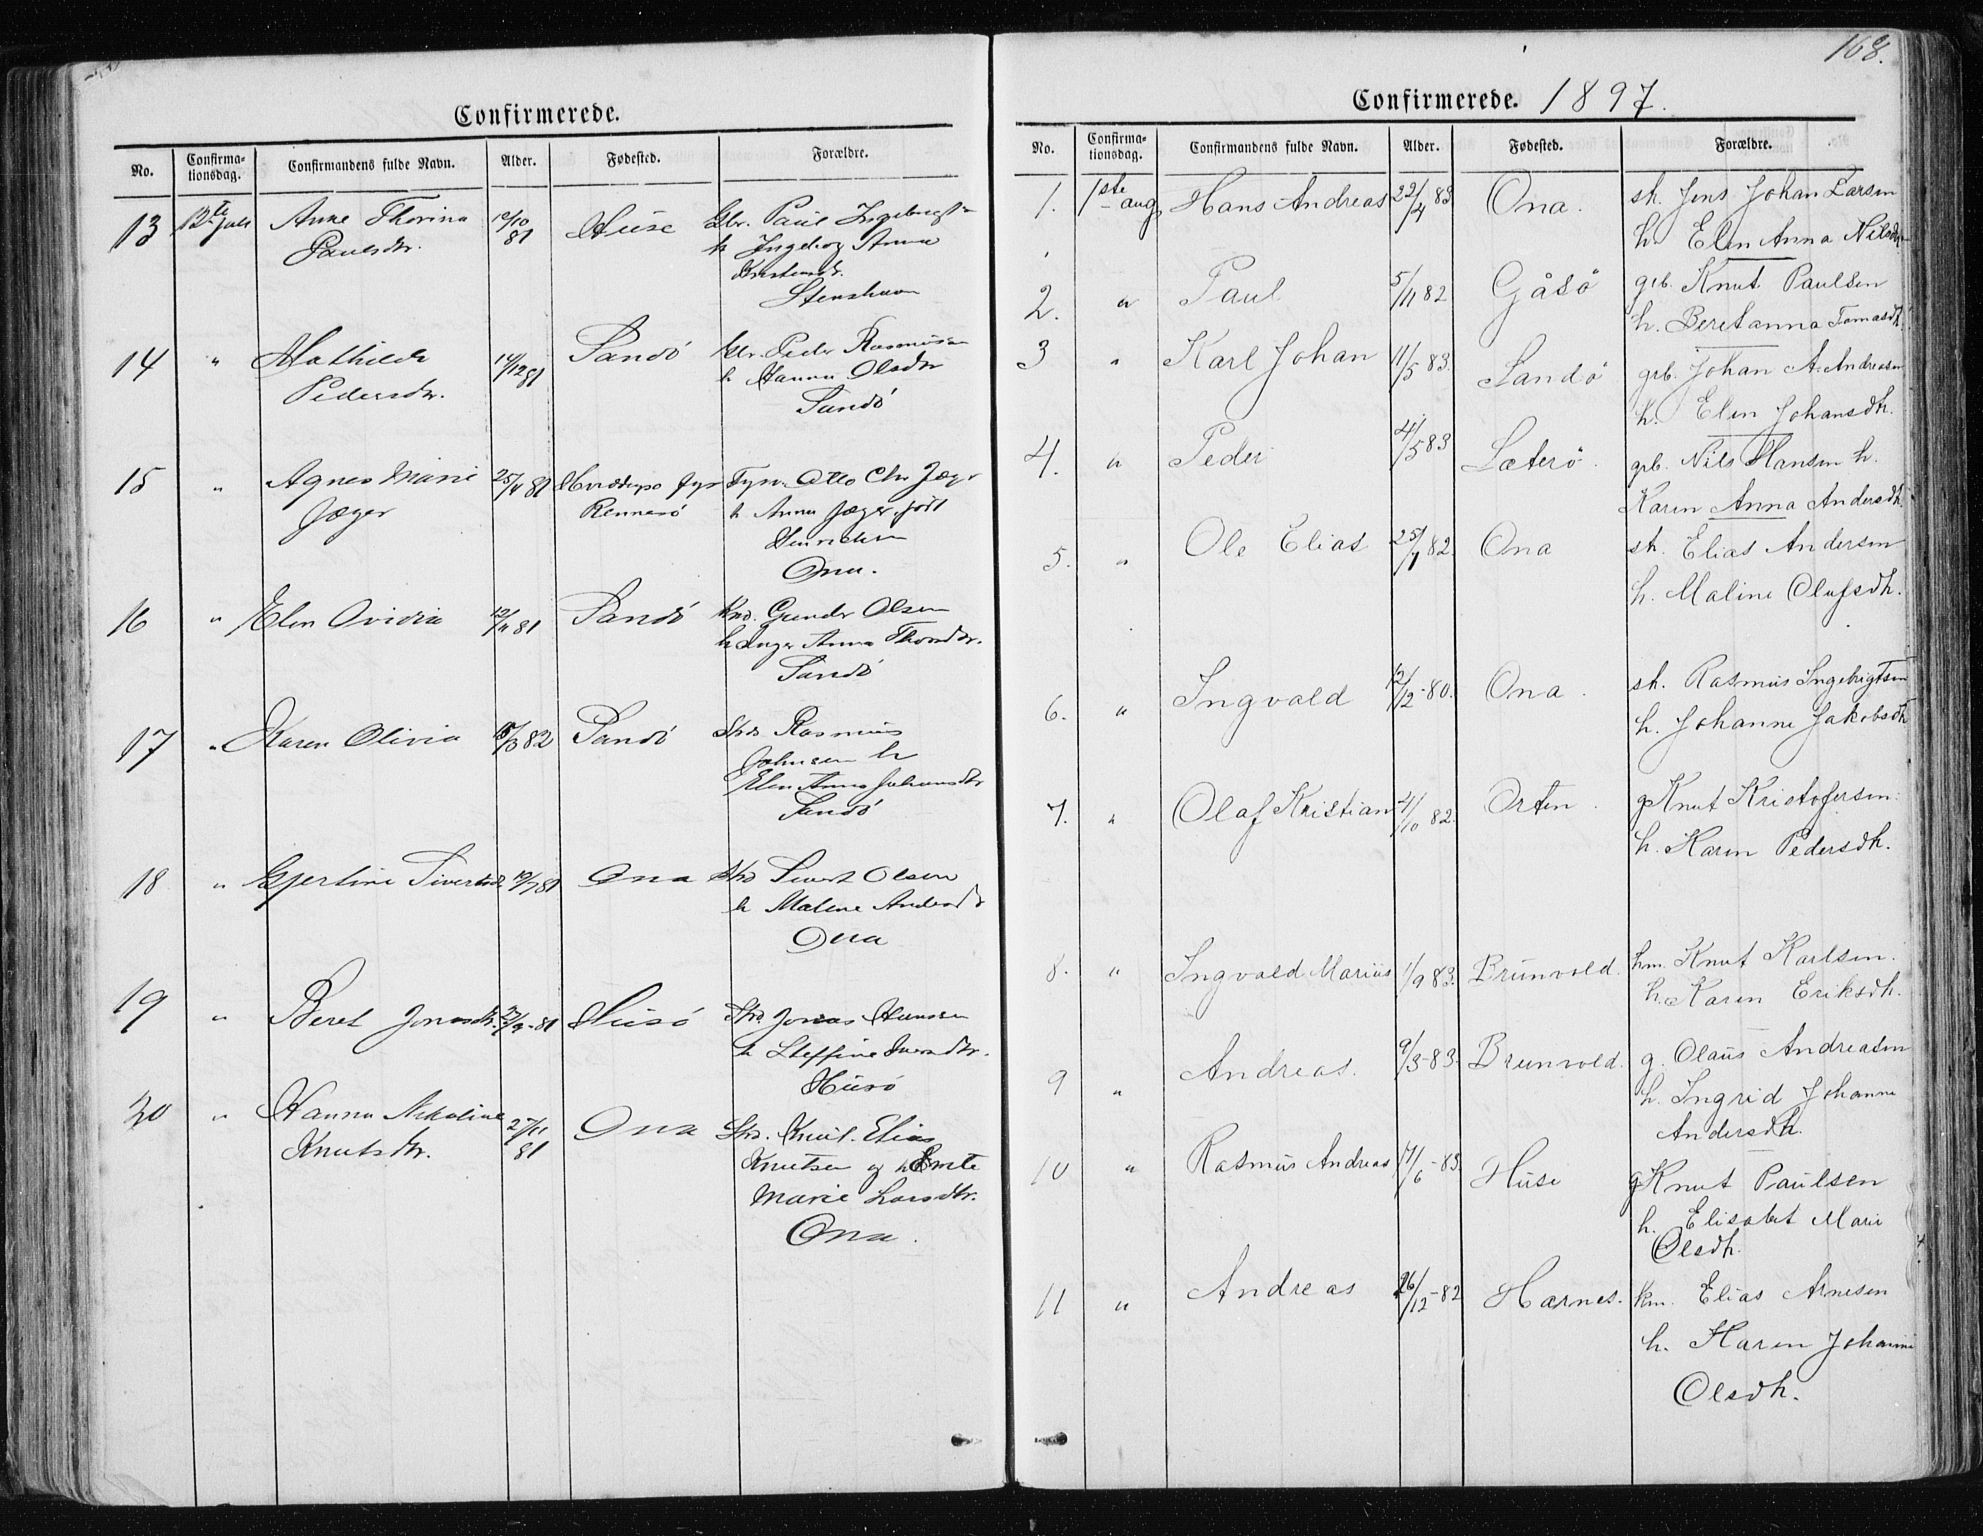 Confirmerede.
No. Confirmationsdag. Confirmandens fulde Navn. Alder. Fødested. Forældre.
13 12te Juli Anne Thorina 10/10 81 Huse Gbr. Paul Ingebrigtsn
Paulsdtr. h Ingeborg Anna
Kristensdr.
Stenshavn
14 " Mathilde 14/12 81 Sandö Gbr. Peder Rasmusen
Pedersdtr. h Hanna Olsdtr
Sandö
15 " Agnes Marie 25/11 81 fyr Fyrv. Otto Chr Jæger
Jæger Rennesö h Anna Jæger født
Henriksen
Ona.
16 " Elen Ovidia 12/11 81 Sandö Gunder Olsen
h Inger Anna
Sandö
17 " Karen Olivia /3 82 Sandö Rasmus
Johnsen h
Elen Anna Johansdtr
Sandö
18 " Gjertine Sivertsd. 19/7 81 Ona Sivert Olsen
h Maline Andersdtr
Ona
19 " Beret Jonasdtr. /9-81 Husö Jonas Hansen
h Steffine
Husö
20 " Hanna Nikoline 27/11 81 Ona Knut Elias
Knutsdtr. Knutsen og h
Marie Larsdtr.
Ona.
168.
Confirmerede. 1897.
No. Confirmationsdag. Confirmandens fulde Navn. Alder. Fødested. Forældre.
1. 1ste aug. Hans Andreas 22/4 83 Ona. sk. Jens Johan Larsen
h. Elen Anna Nilsdh
2. " Paul 5/11 82 Gåsö grb. Knut Paulsen
h. Beret anna Tomasdh.
3 " Karl Johan 11/5 83. Sandö grb. Johan A. Andreasen
h. Elen Johansdh.
4. " Peder 4/5 83 Sæterö. grb. Nils Hansen h.
Karen Anna Andersdh.
5. " Ole Elias 25/1 82. Ona sk. Elias Andersen
h. Maline Olufsdh.
6. " Ingvald 12/12-80. Ona. sk. Rasmus Ingebrigtsen
h. Johanne Jakobsdh
7. " Olaf Kristian 4/10 82. Orten. g Knut Kristofersen.
h. Karen Pedersdh.
8. " Ingvald Marius 1/9 83. Brunvold. hm. Knut Karlsen.
h. Karen Eriksdh.
9 " Andreas. 9/3-83. Brunvold. g. Olaus Andreasen
h. Ingrid Johanne
Andersdh.
10 " Rasmus Andreas 17/6-83. Huse g Knut Paulsen
h. Elisabet Marie
Olsdh.
11 " Andreas 26/12-82 Harnes. km. Elias Arnesen
h. Karen Johanne
Olsdh.